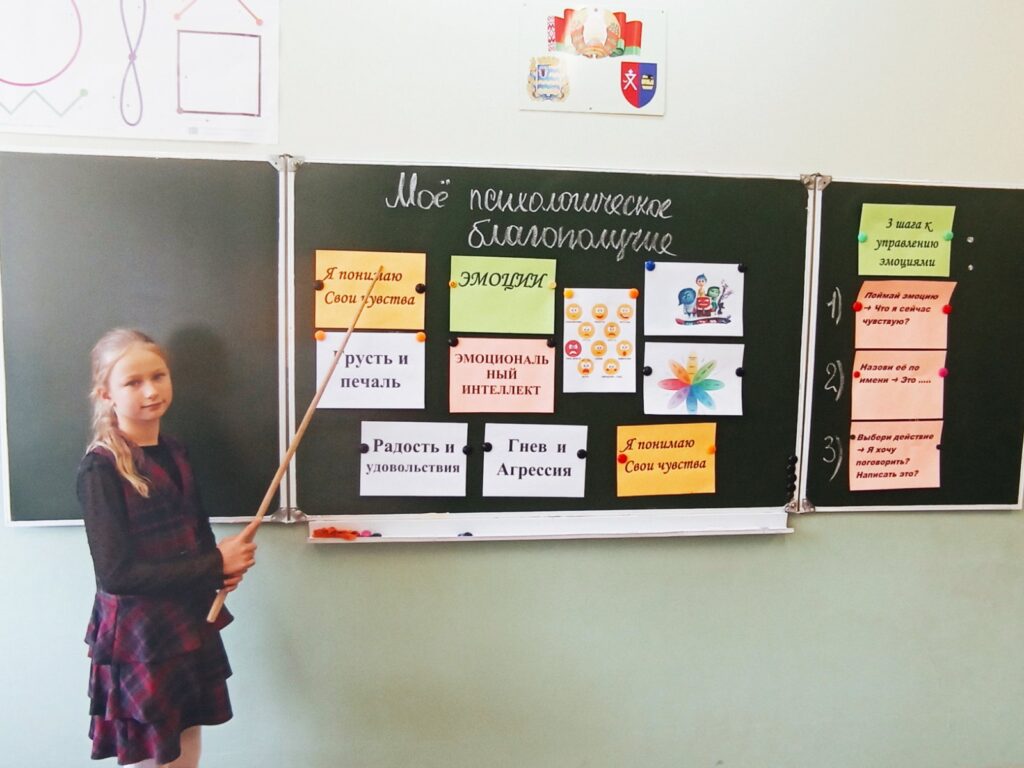 Моё психологическое
благополучие
Я понимаю
Свои чувства
ЭМОЦИИ
Грусть и
печаль
ЭМОЦИОНАЛЬ
НЫЙ
ИНТЕЛЛЕКТ
Радость и
удовольствия
Гнев и
Агрессия
Я понимаю
Свои чувства
3 шага к
управлению
эмоциями
1)
Поймай эмоцию
→ Что я сейчас
чувствую?
2)
Назови её по
имени → Это .....
3)
Выбери действие
→ Я хочу
поговорить?
Написать это?